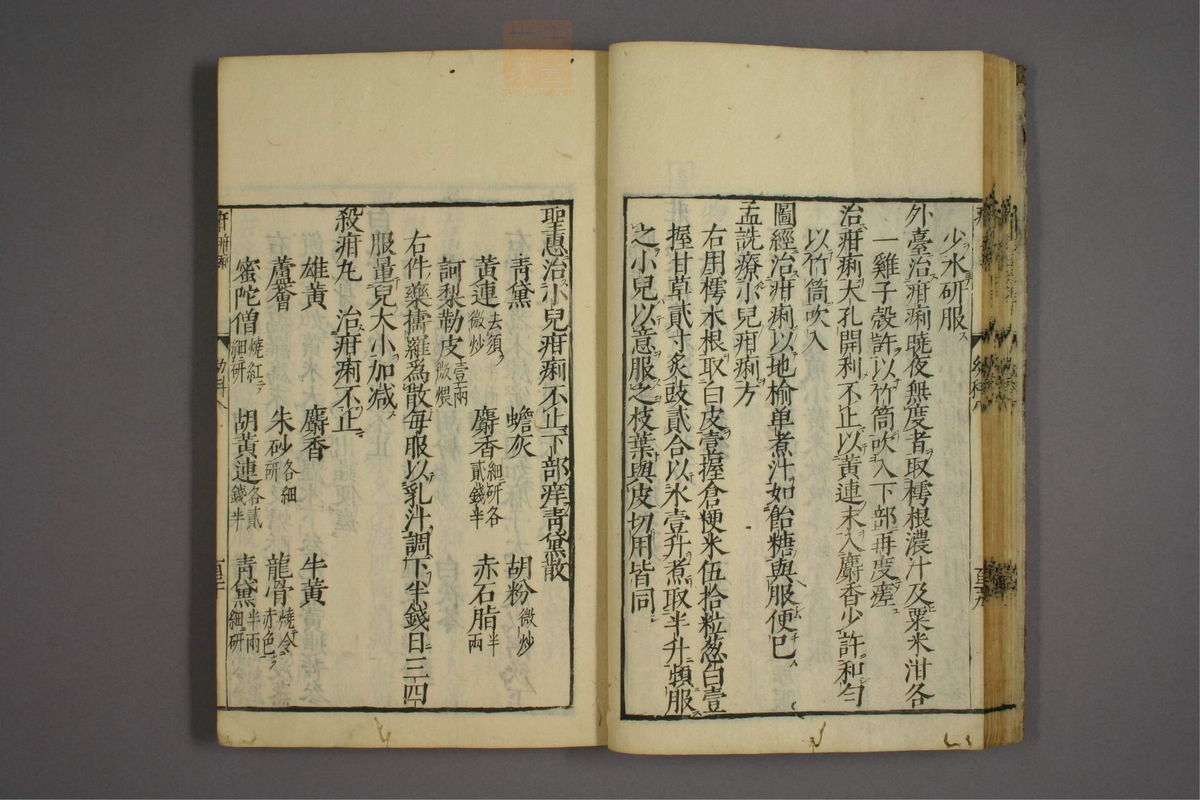 少水研服
外臺治疳痢曉夜無度者取樗根濃汁及粟米泔各
一雞子殼許以竹筒吹入下部再度瘥
治疳痢大孔開利不止以黃連末入麝香少許和勻
以竹筒吹入
圖經治疳痢以地榆单煮汁如飴糖與服便已
孟詵療小兒疳痢方
右用樗木根取白皮壹握倉粳米伍拾粒葱白壹
握甘草貳寸炙豉貳合以水壹升煮取半升頓服
之小兒以意服之枝葉與皮切用皆同
聖惠治小兒疳痢不止下部痒青黛散
青黛 蟾灰 胡粉微炒
黃連去須微炒 麝香細研各貳錢半 赤石脂半兩
訶梨勒皮壹兩微煨
右件藥擣羅為散每服以乳汁調下半錢日三四
服量兒大小加减
殺疳丸 治疳痢不止
雄黃 麝香 牛黃
蘆薈 朱砂各細研 龍骨燒令赤色
蜜陀僧燒紅細研 胡黃連各貳錢半 青黛半兩細研